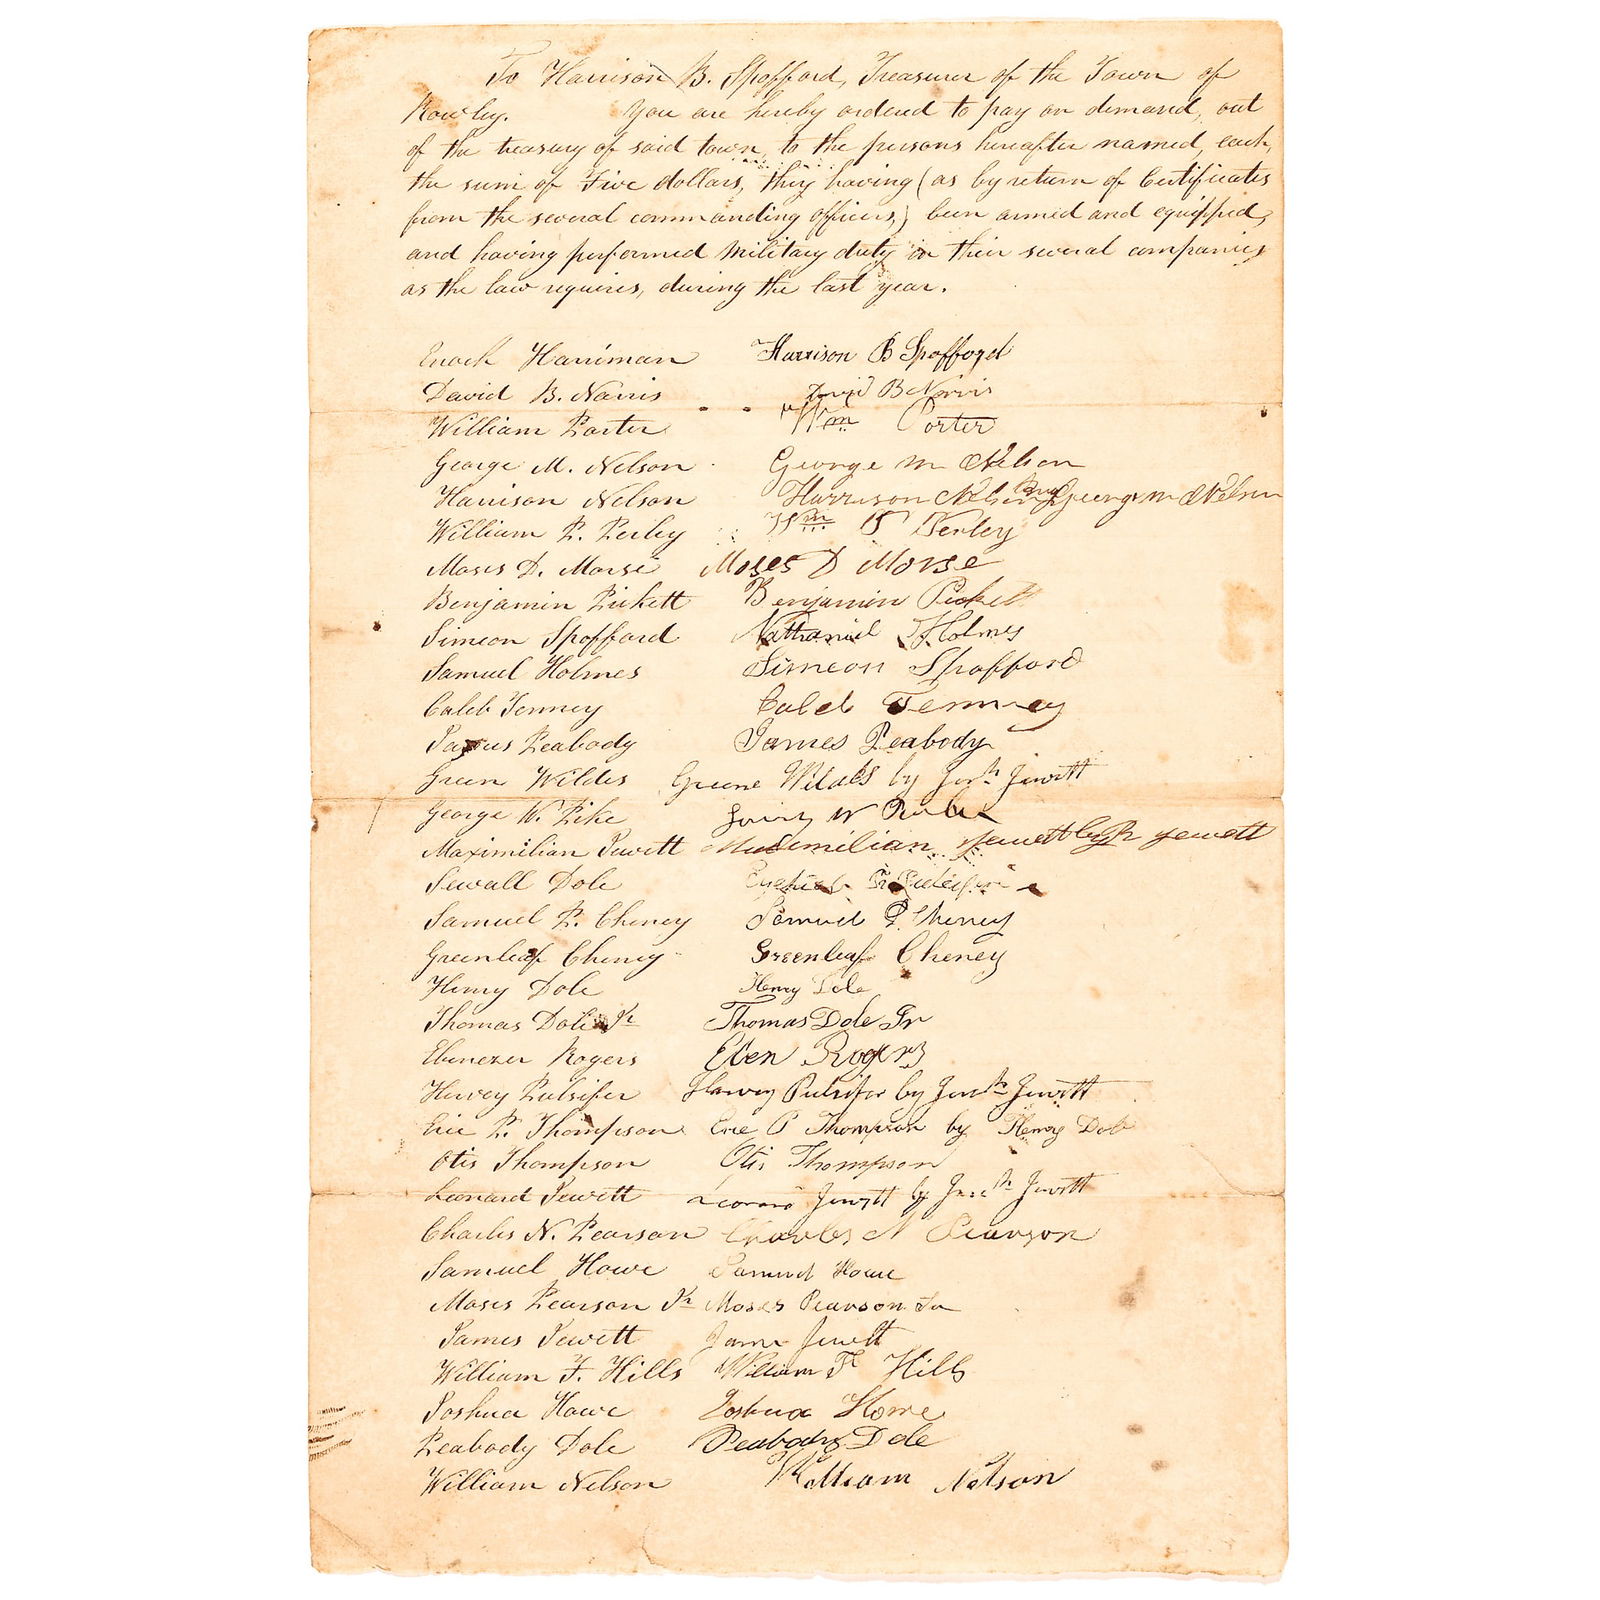 To Harrison B. Spofford, Treasurer of the Town of
Rowley. You are hereby ordered to pay on demand, out
of the treasury of said town, to the persons hereafter named, each,
the sum of Five dollars, they having (as by return of Certificates
from the several commanding officers,) been armed and equipped,
and having performed military duty in their several companies
as the law requires, during the last year.
Enoch Harriman Harrison B Spofford
David B. Norris David B Norris
William Porter Wm Porter
George M. Nelson George M Nelson
Harrison Nelson Harrison Nelson By George M Nelson
William P. Perley Wm P Perley
Moses D. Morse Moses D Morse
Benjamin Pickett Benjamin Pickett
Simeon Spofford Nathaniel Holmes
Samuel Holmes Simeon Spofford
Caleb Tenney Caleb Tenney
James Peabody James Peabody
Green Wildes Greene Wildes by Jonth Jewett
George W. Pike W
Maximilian Jewett Maximilian Jewett by Jewett
Sewall Dole
Samuel P. Cheney Samuel P. Cheney
Greenleaf Cheney Greenleaf Cheney
Henry Dole Henry Dole
Thomas Dole Jr Thomas Dole Jr
Ebenezer Rogers Eben Rogers
Harvey Pulsifer Harvey Pulsifer by Jonth Jewett
Eric P. Thompson Eric P Thompson by Henry Dole
Otis Thompson Otis Thompson
Leonard Jewett Leonard Jewett by Jonth Jewett
Charles N. Pearson Charles N Pearson
Samuel Howe Samuel Howe
Moses Pearson Jr Moses Pearson Jr
James Jewett James Jewett
William F. Hills William F Hills
Joshua Howe Joshua Howe
Peabody Dole Peabody Dole
William Nelson William Nelson